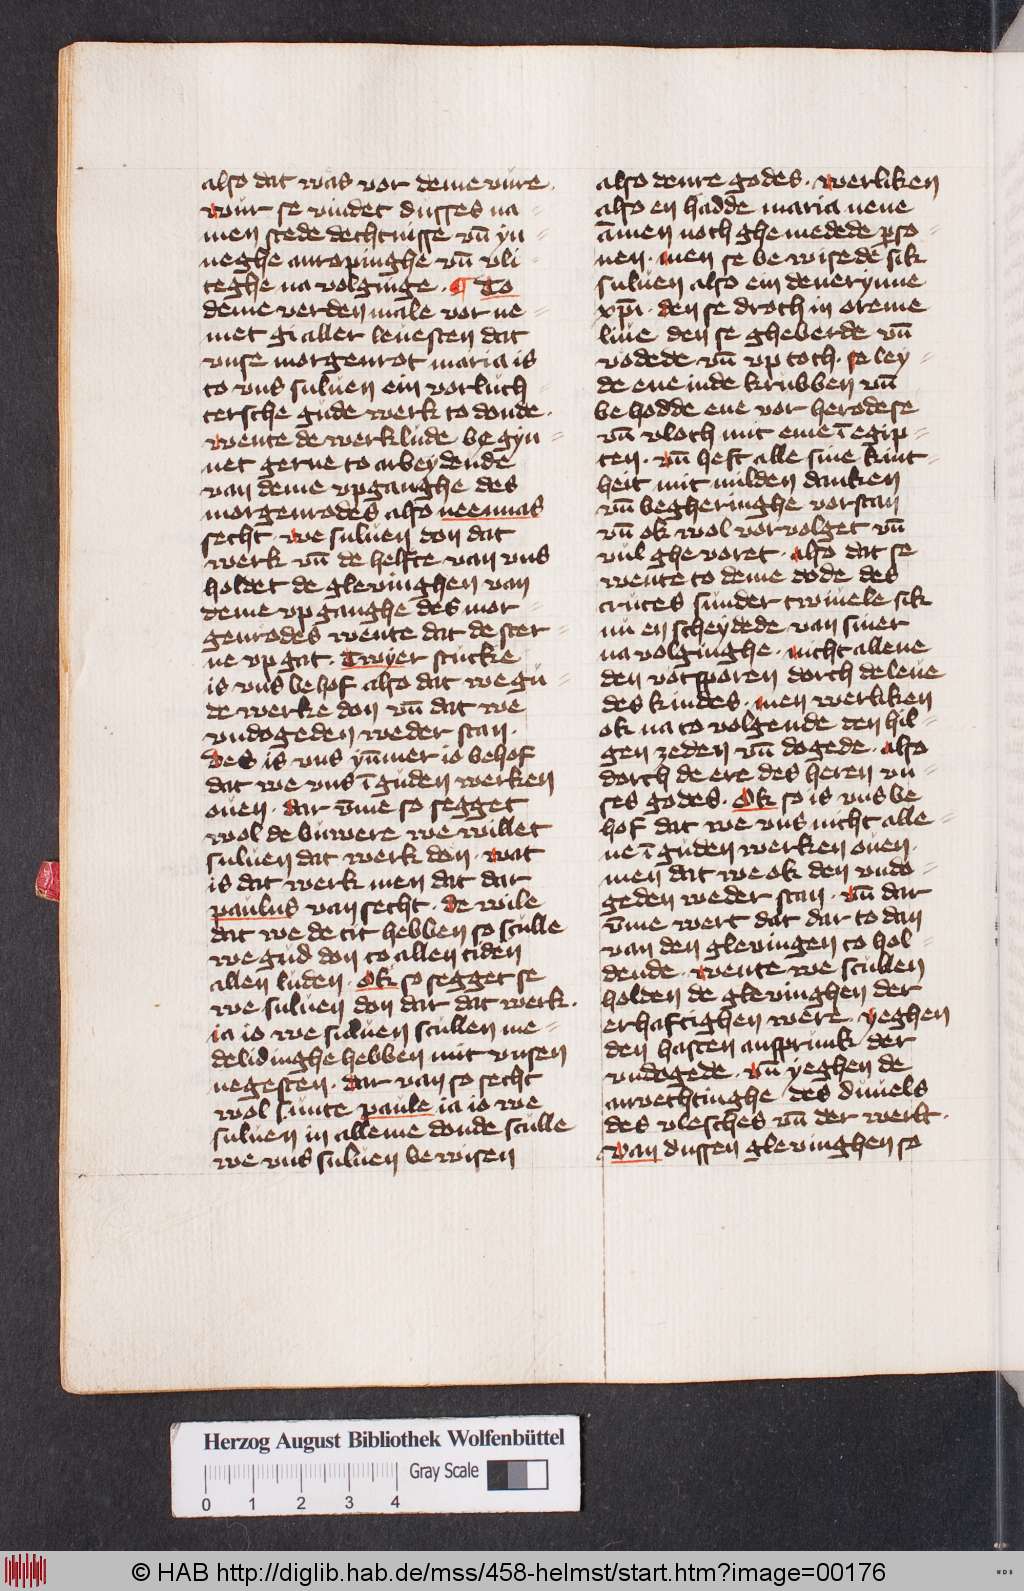 also dat was vor deme vure.
wur se vindet dusses na-
men stede dechtnisse vn̄ yn-
neghe anropinghe vn̄ vli-
teghe na volginge. ¶ To
deme verden male vor ne-
met gi aller leuesten dat
vnse morgenrot maria is
to vns suluen ein vorluch-
tersche gude werk to donde.
wente de werklude begyn-
net gerne to arbeydende
van deme vpganghe des
morgenrodes also neemias
secht. we suluen don dat
werk vn̄ de helfte van vns
holdet de glevinghen van
deme vpganghe des mor-
genrodes wente dat de ster-
ne vp gat. Twyer stucke
is vns behof also dat we gu-
de werke don vn̄ dat we
vndogeden weder stan.
Des is vns ym̄mer io behof
dat we vns ī guden werken
ouen. dar v̄me so segget
wol de buwere we willet
suluen dat werk don. wat
is dat werk men dat dar
paulus van secht. De wile
dat we de tit hebben so sculle
we gud don to allen tiden
allen luden. Ok so segget se
we suluen don dat dat werk.
ia io we suluen scullen me-
delidinghe hebben mit vnsen
negesten. dar van so secht
wol sunte paule ia io we
suluen in alleme donde sculle
we vns suluen bewisen
also denre godes. werliken
also en hadde maria nene
āmen noch ghemedede p̄so-
nen. men se bewisede sik
suluen also ein denerynne
xp̄i. den se droch in oreme
liue den se gheberde vn̄
vodede vn̄ vp toch. so ley-
de ene in de krubben vn̄
behodde ene vor herodese
vn̄ vloch mit eme ī egip-
ten. vn̄ heft alle sine kint-
heit mit milden danken
vn̄ begheringhe vorstan
vn̄ ok wol vorvolget vn̄
vul ghevoret. also dat se
wente to deme dode des
cruces sunder twiuele sik
nu en scheydede van siner
na volginghe. nicht allene
den votsporen dorch de leue
des kindes. men werliken
ok na to volgende den hil-
gen zeden vn̄ dogede. also
dorch de ere des heren vn-
ses godes. Ok so is vns be-
hof dat we vns nicht alle-
ne ī guden werken ouen.
men dat we ok den vndo-
geden weder stan. vn̄ dar
v̄me wert dat dar to dan
van den glevingen to hol-
dende. wente we scullen
holden de glevinghen der
erhaftighen were. yeghen
den hasten ansprunk der
vndogede. vn̄ yeghen de
anvechtinghe des duuels
des vlesches vn̄ der werlt.
Van dussen glevinghen so
Herzog August Bibliothek Wolfenbüttel
Gray Scale
0 1 2 3 4
© HAB http://diglib.hab.de/mss/458-helmst/start.htm?image=00176